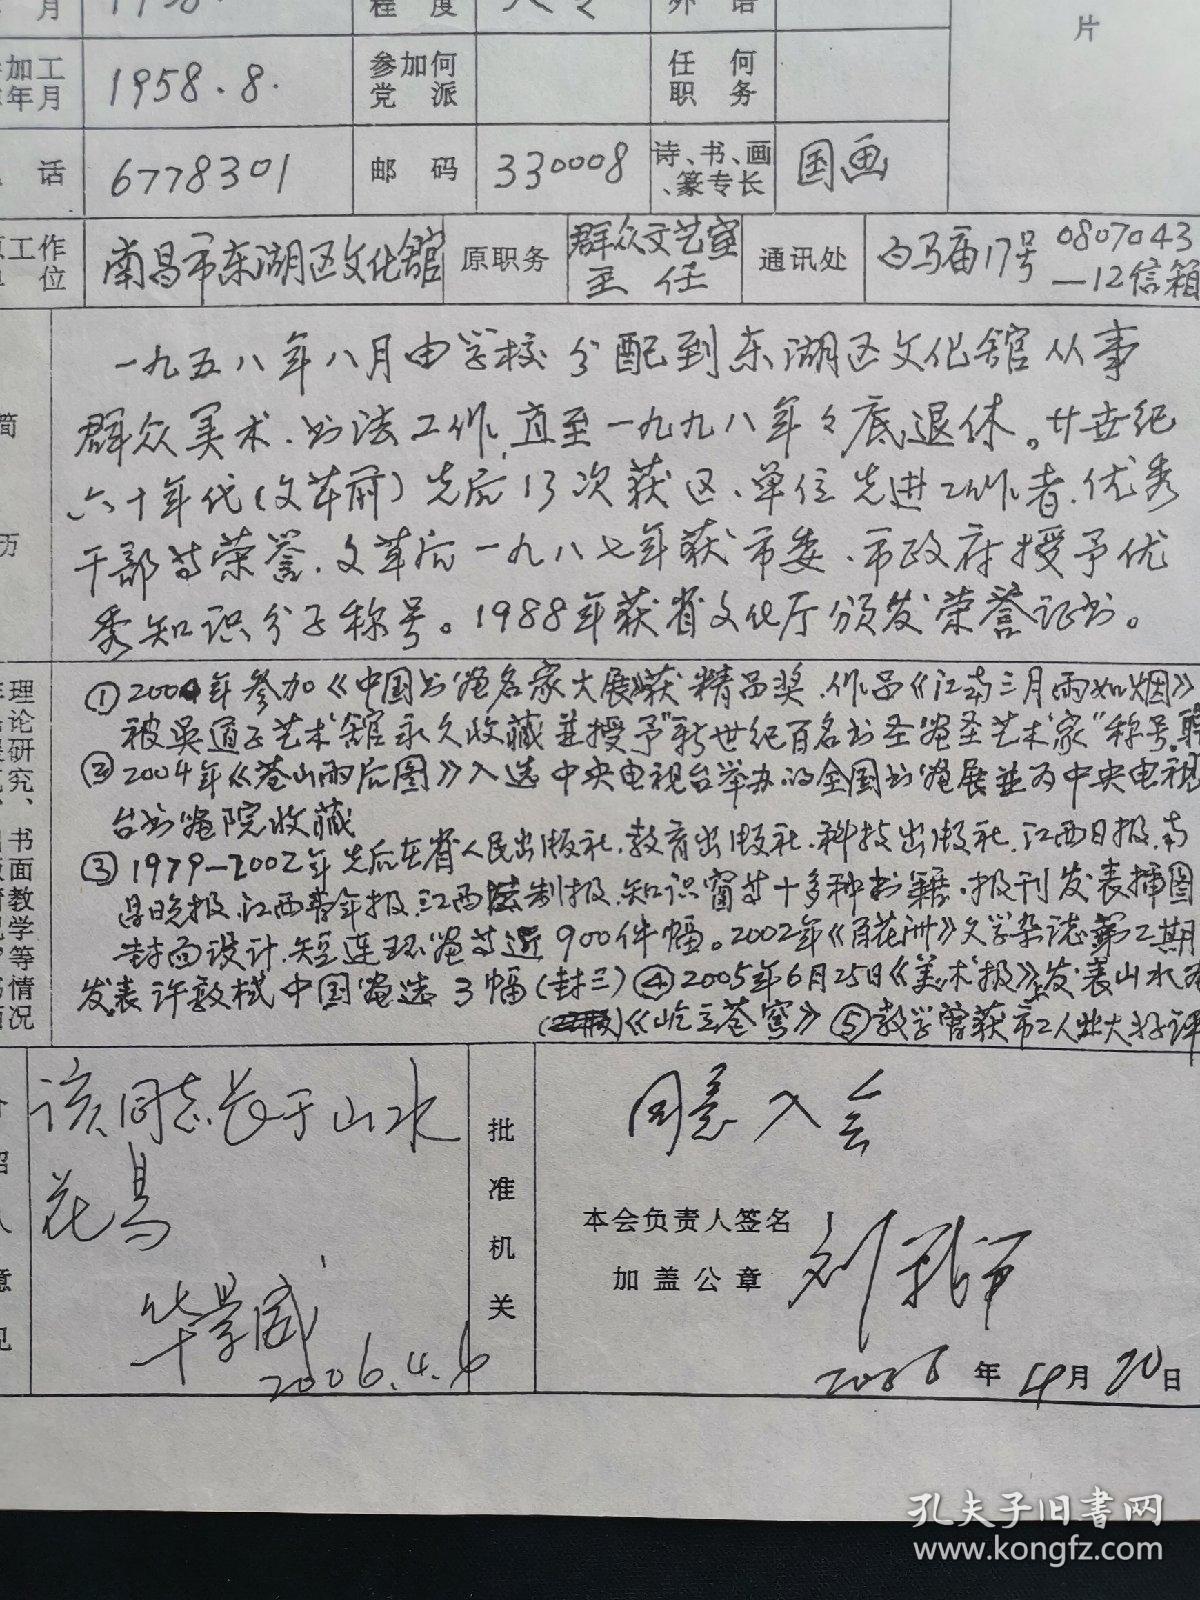 月 1958. 程度 外语
片
加工 年月 1958.8. 参加何党派 任何职务
话 6778301 邮码 330008 诗、书、画、篆专长 国画
工作 位 南昌市东湖区文化馆 原职务 群众文艺室主任 通讯处 白马庙17号 0807043—12信箱
一九五八年八月由学校分配到东湖区文化馆从事
群众美术、书法工作,直至一九九八年年底退休。廿世纪
六十年代(文革前)先后13次获区、单位先进工作者、优秀
干部等荣誉.文革后一九八七年获市委、市政府授予优
秀知识分子称号。1988年获省文化厅颁发荣誉证书。
简历
理论研究、书面教学等情况
①2004年参加《中国书画名家大展》获精品奖.作品《江南三月雨如烟》
被吴道子艺术馆永久收藏并授予"新世纪百名书圣画圣艺术家"称号,聘
②2004年《苍山雨后图》入选中央电视台举办的全国书画展并为中央电视
台书画院收藏
③1979—2002年先后在省人民出版社.教育出版社.科技出版社.江西日报.南
昌晚报.江西青年报.江西法制报.知识窗等十多种书籍.报刊发表插图
封面设计.短连环画等近900件幅。2002年《百花洲》文学杂志第2期
发表许敦栻中国画选3幅(封三)④2005年6月25日《美术报》发表山水画
《屹立苍穹》⑤教学曾获市工人业大好评
该同志长于山水
花鸟
2006.4.6
意见
批准机关
同意入会
本会负责人签名
加盖公章
2006年4月20日
孔夫子旧书网
www.kongfz.com